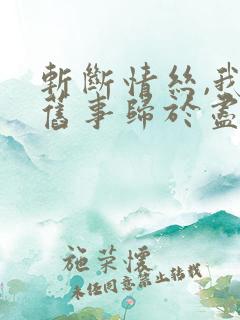 斬斷情絲,我
舊事歸於盡
施荣懷
未任同意禁止转载